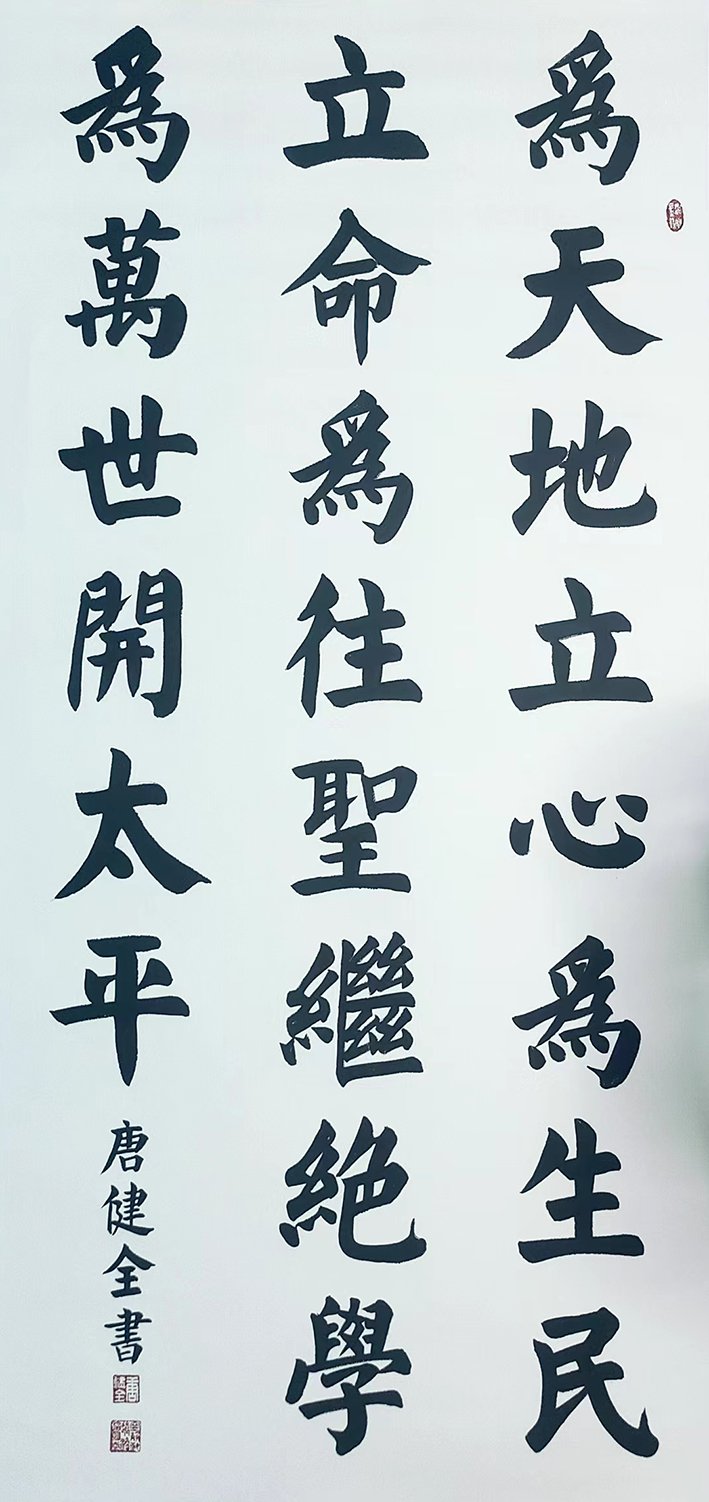 為天地立心為生民
立命為往聖繼絕學
為萬世開太平
唐健全書